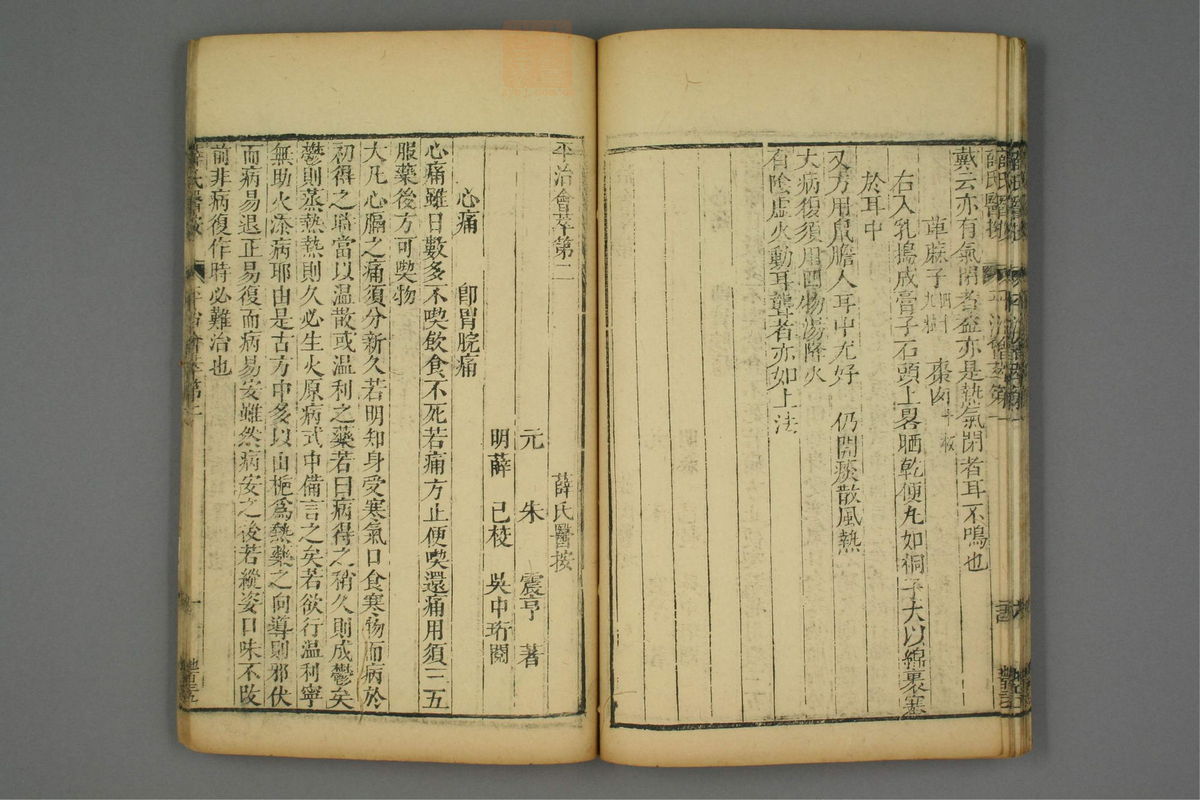 戴云亦有氣閉者蓋亦是熱氣閉者耳不鳴也
萆麻子 棗肉
右入乳搗成膏子石頭上畧晒乾便丸如桐子大以綿裹塞
於耳中
又方用鼠膽入耳中尤好 仍開痰散風熱
大病後須用四物湯降火
有陰虛火動耳聾者亦如上法
平治會萃第二 薛氏醫按
元 朱 震亨 著
明薛 己校 吳中珩閱
心痛 卽胃脘痛
心痛雖日數多不喫飲食不死若痛方止便喫還痛用須三五
服藥後方可喫物
大凡心膈之痛須分新久若明知身受寒氣口食寒物而病於
初得之時當以温散或温利之藥若曰病得之稍久則成鬱矣
鬱則蒸熱熱則久必生火原病式中備言之矣若欲行温利寧
無助火添病耶由是古方中多以山梔爲熱藥之向導則邪伏
而病易退正易復而病易安雖然病安之後若縱恣口味不改
前非病復作時必難治也